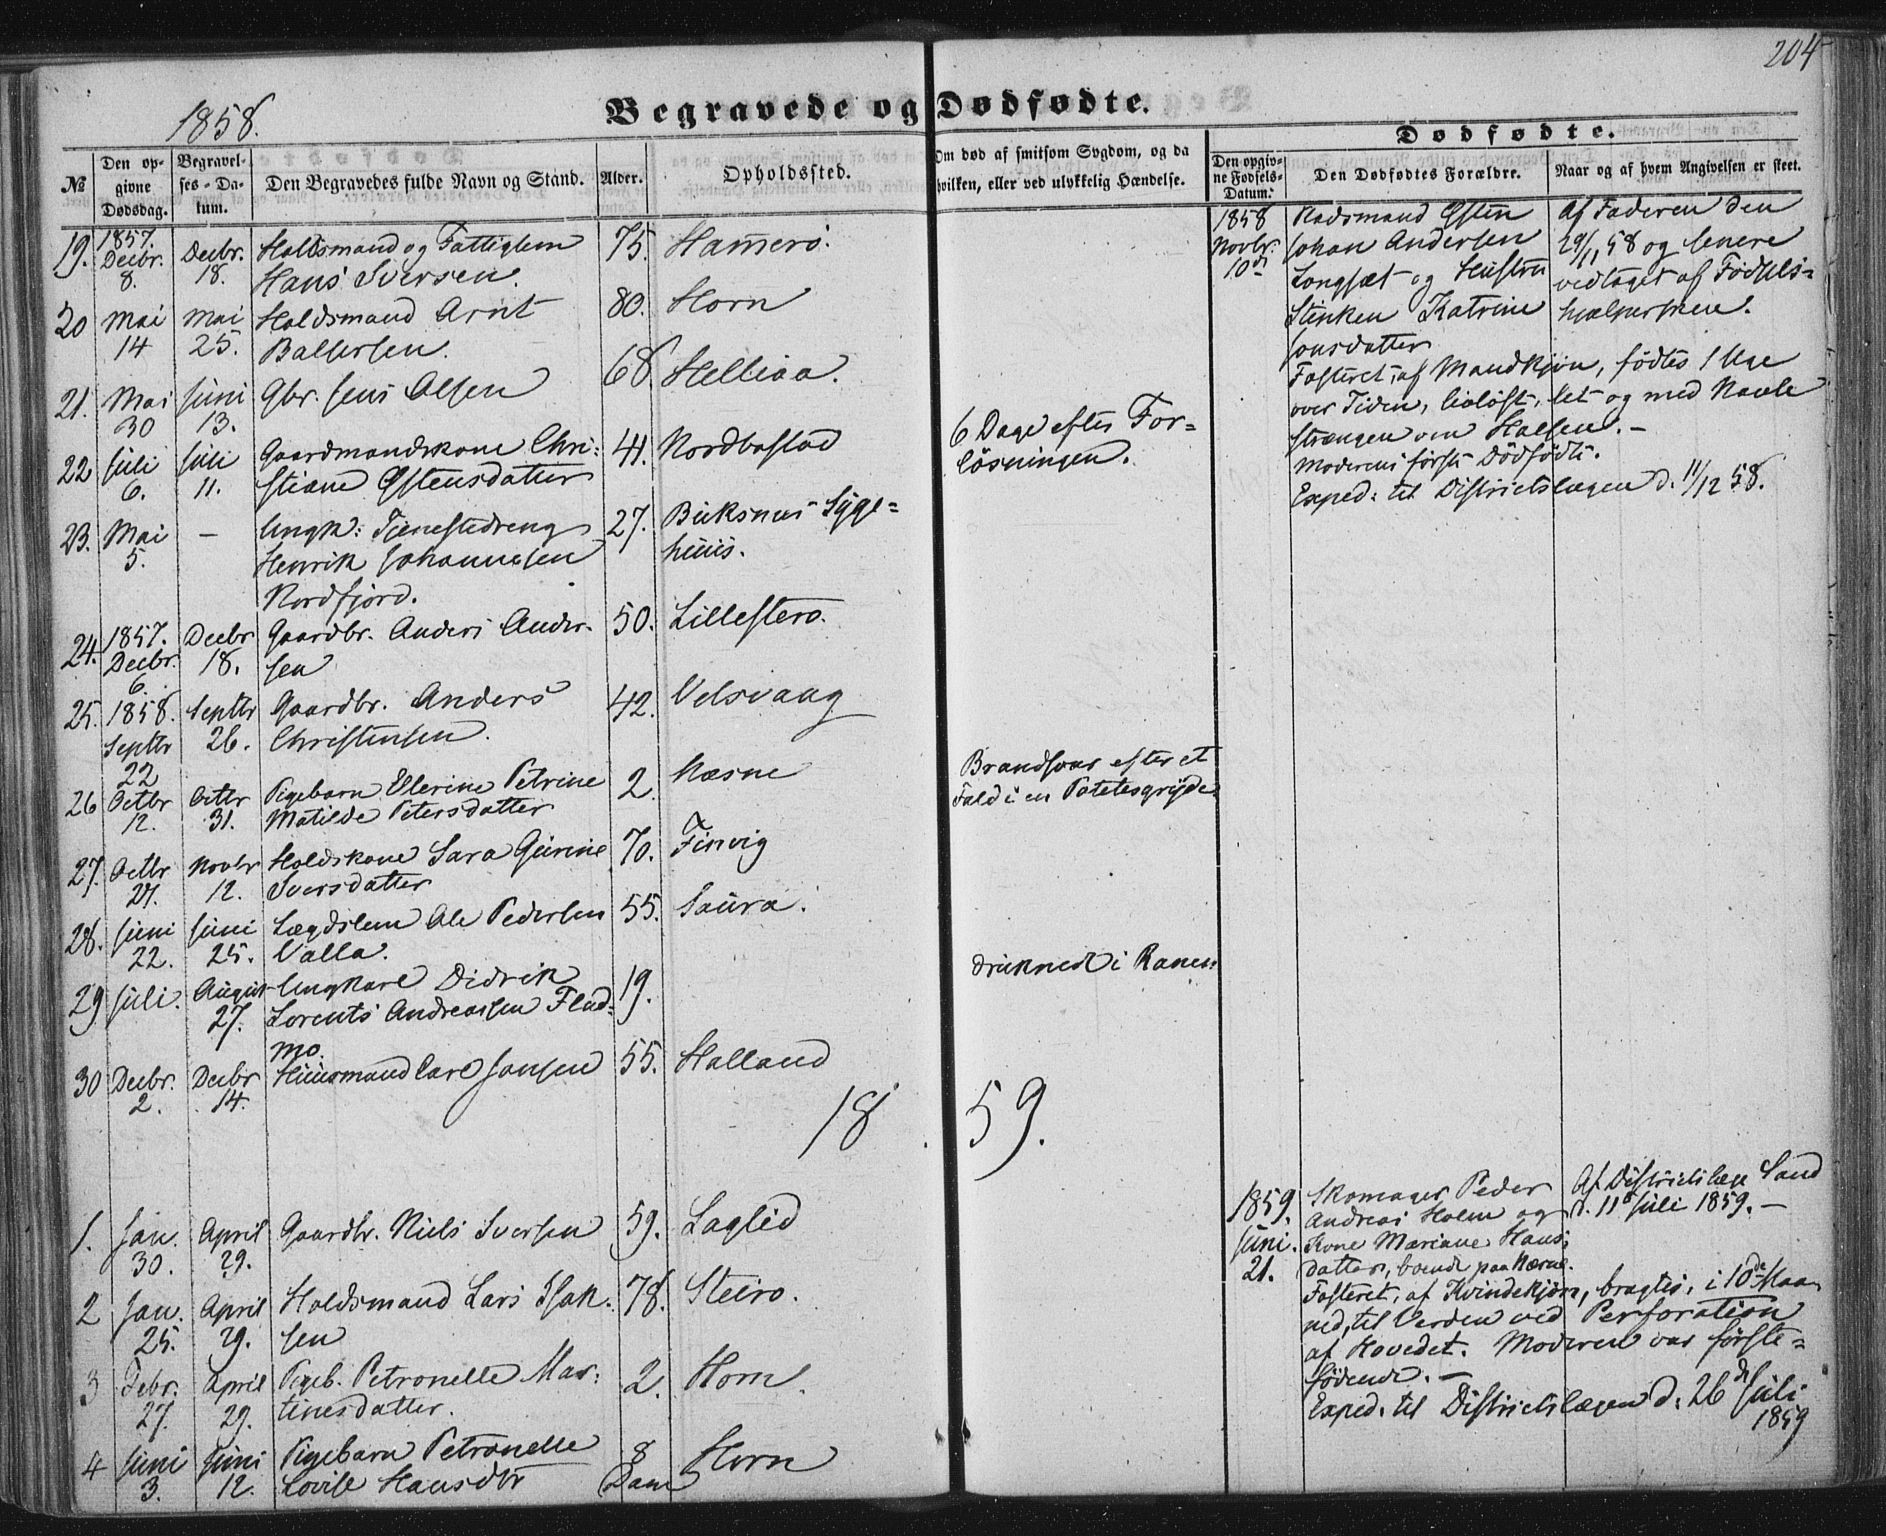 204
1858.
Begravede og Dødfødte.
Dødfødte.
№
Den opgivne Dødsdag.
Begravelses-Datum.
Den Begravedes fulde Navn og Stand.
Alder.
Opholdssted.
Om død af smitsom Sygdom, og da hvilken, eller ved ulykkelig Hændelse.
Den opgivne Fødsels-Datum.
Den Dødfødtes Forældre.
Naar og af hvem Angivelsen er steet.
19. 1857. Decbr. 8. Decbr. 18. Holdsmand og Fattiglem 75. Hamerö.
Hans Iversen.
20 Mai 14 Mai 25. Holdsmand Arnt 80. Horn
Baltsersen.
21. Mai 30 Juni 13. Gbr. Jens Olsen 68. Helliaa.
22 Juli 6. Juli 11. Gaardmandskone Chri- 41. Nordbostad 6 Dage efter For-
stiane Østensdatter løsningen.
23. Mai 5. — Ungk: Tjenestedreng 27. Buksnes Syge-
Henrik Johannesen huus.
Nordfjord.
24. 1857. Decbr. 6. Decbr 18. Gaardbr. Anders Ander- 50. Lillestero.
sen
25. 1858. Septbr 22 Septbr 26. Gaardbr. Anders 42. Velsvaag
Christensen.
26 Octbr 12. Octbr 31. Pigebarn Ellerine Petrine 2. Næsne Brandsaar efter et
Matilde Petersdatter Fald i en Potetesgryde.
27. Octbr 27. Novbr 12. Holdskone Sara Gurine 70. Finvig
Iversdatter
28. Juni 22. Juni 25. Lægdslem Ole Pedersen 55. Saura.
Valla.
29 Juli. August 27. Ungkarl Didrik 19. druknede i Ranen.
Lorents Andreassen Flad-
mo.
30 Decbr. 2. Decbr 14. Huusmand Carl Jonsen 55. Halland
1859.
1. Jan. 30. April 29. Gaardbr. Niels Iversen 59. Laglid
2 Jan. 25. April 29. Holdsmand Lars Isak- 78. Steiro.
sen
3 Febr. 27. April 29. Pigeb. Petronelle Mar- 2. Horn.
tinesdatter.
4 Juni 3. Juni 12. Pigebarn Petronelle 8 Dage Horn
Lovise Hansdtr
1858 Novbr. 10de
Husmand Østen
Johan Andersen
Longset og Hustru
Stinken Katrine
Jonsdatter
Af Faderen den
29/11 58 og senere
vedtaget af Fødsels-
hjælpersken.
Fosteret, af Mandkjøn, fødtes 1 Uge
over Tiden, livløst, let og med Navle
strængen om Halsen. —
Moderens første Dødfødte.
Exped: til Districtslægen d. 11/12 58.
1859. Juni. 21.
Skomager Peder
Andreas Holm og
Kone Mariane Hans-
datter, boende paa Næsne.
Af Districtslæge Sand
d. 11te Juli 1859. —
Fosteret, af Kvindekjøn, bragtes, i 10de Maa-
ned, til Verden ved Perforation
af Hovedet. Moderen var første-
fødende. —
Exped. til Districtslægen d. 26de Juli
1859